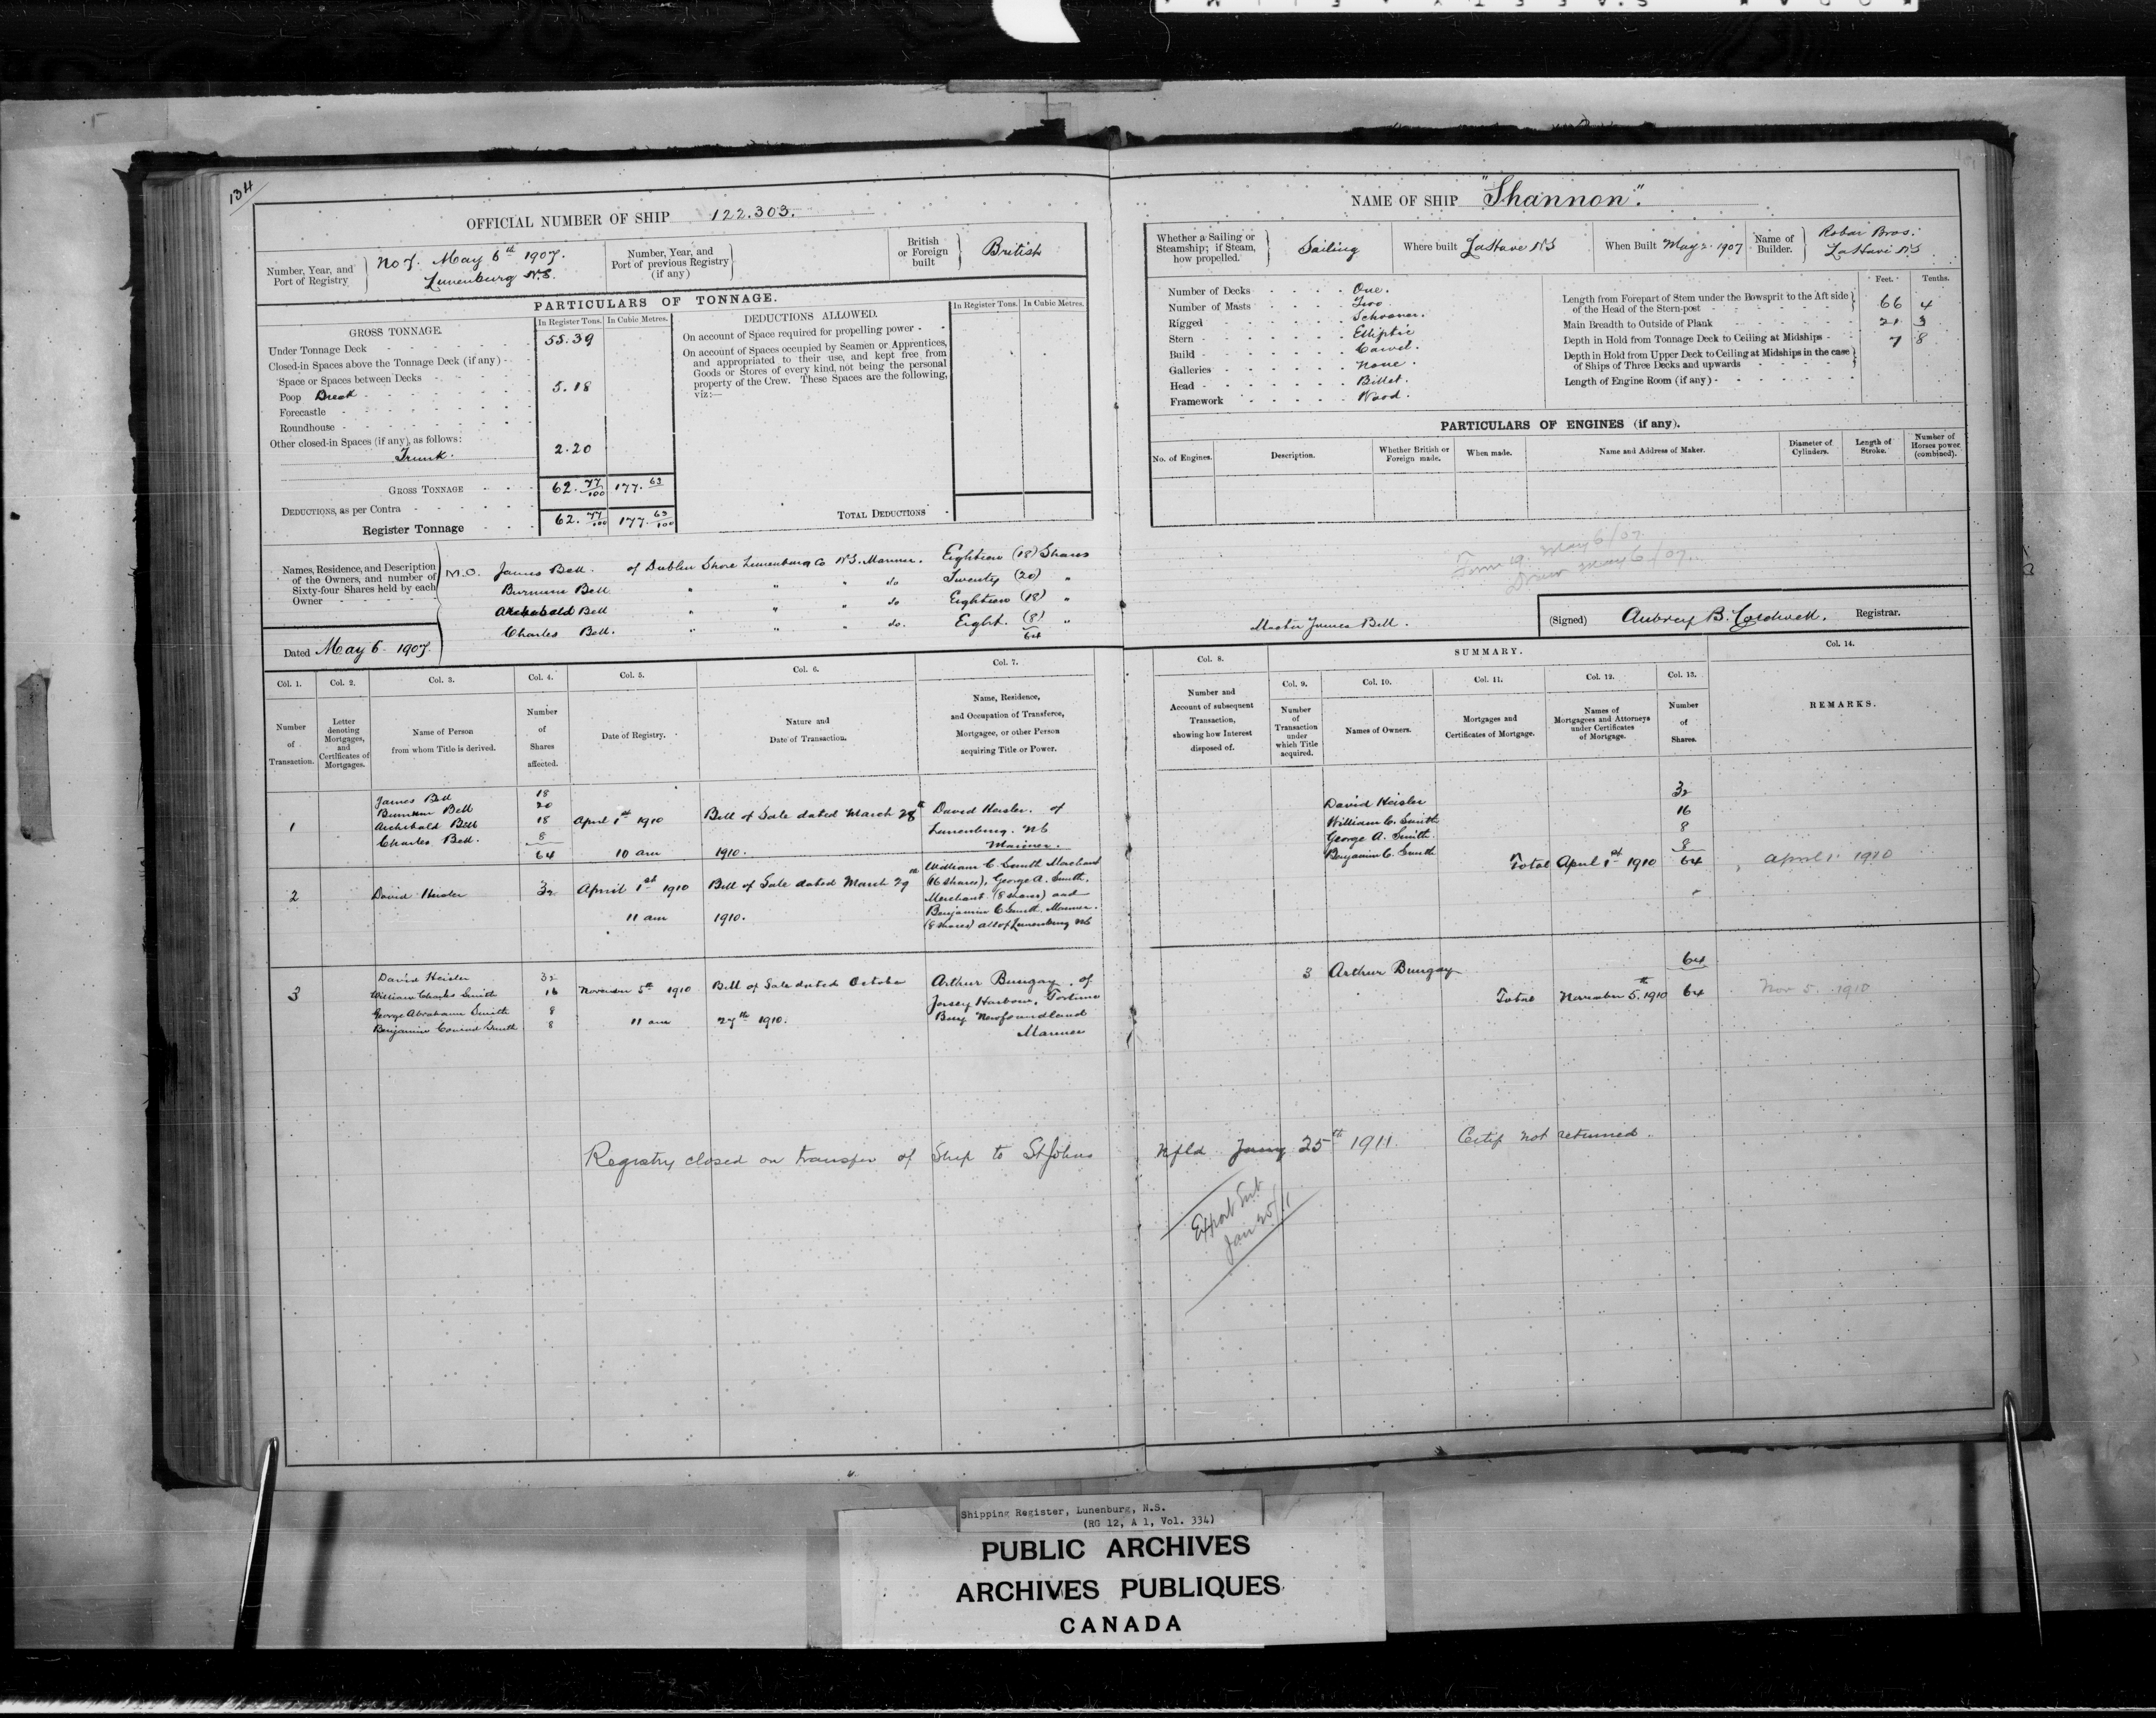 134
OFFICIAL NUMBER OF SHIP 122.303.
Number, Year, and Port of Registry
No 7. May 6th 1907.
Lunenburg N.S.
Number, Year, and Port of previous Registry (if any)
British or Foreign built
British
PARTICULARS OF TONNAGE.
GROSS TONNAGE.
In Register Tons. In Cubic Metres.
Under Tonnage Deck 55.39
Closed-in Spaces above the Tonnage Deck (if any)
Space or Spaces between Decks
Poop Break 5.18
Forecastle
Roundhouse
Other closed-in Spaces (if any), as follows:
Trunk. 2.20
GROSS TONNAGE 62.77/100 177.63
DEDUCTIONS, as per Contra
Register Tonnage 62.77/100 177.63/100
DEDUCTIONS ALLOWED.
In Register Tons. In Cubic Metres.
On account of Space required for propelling power
On account of Spaces occupied by Seamen or Apprentices,
and appropriated to their use, and kept free from
Goods or Stores of every kind, not being the personal
property of the Crew. These Spaces are the following,
viz:—
TOTAL DEDUCTIONS
Names, Residence, and Description
of the Owners, and number of
Sixty-four Shares held by each
Owner
M.O. James Bell. of Dublin Shore Lunenburg Co N.S. Mariner. Eighteen (18) Shares
Bell " " " do Twenty (20) "
Archibald Bell " " " do Eighteen (18) "
Charles Bell. " " " do. Eight. (8) "
64
Dated May 6 1907.
NAME OF SHIP "Shannon".
Whether a Sailing or Steamship; if Steam, how propelled.
Sailing
Where built LaHave N.S
When Built May 2 1907
Name of Builder.
Robar Bros.
LaHave N.S
Number of Decks One.
Number of Masts Two.
Rigged Schooner.
Stern Elliptic
Build Carvel.
Galleries None.
Head Billet.
Framework Wood.
Feet. Tenths.
Length from Forepart of Stem under the Bowsprit to the Aft side of the Head of the Stern-post 66 4
Main Breadth to Outside of Plank 21 3
Depth in Hold from Tonnage Deck to Ceiling at Midships 7 8
Depth in Hold from Upper Deck to Ceiling at Midships in the case of Ships of Three Decks and upwards
Length of Engine Room (if any)
PARTICULARS OF ENGINES (if any).
No. of Engines.
Description.
Whether British or Foreign made.
When made.
Name and Address of Maker.
Diameter of Cylinders.
Length of Stroke.
Number of Horses power (combined).
Form 19. May 6/07.
May 6/07.
Master James Bell.
(Signed) Aubrey B. Caldwell. Registrar.
Col. 1.
Number of Transaction.
Col. 2.
Letter denoting Mortgages, and Certificates of Mortgages.
Col. 3.
Name of Person from whom Title is derived.
Col. 4.
Number of Shares affected.
Col. 5.
Date of Registry.
Col. 6.
Nature and Date of Transaction.
Col. 7.
Name, Residence, and Occupation of Transferee, Mortgagee, or other Person acquiring Title or Power.
Col. 8.
Number and Account of subsequent Transaction, showing how Interest disposed of.
SUMMARY.
Col. 9.
Number of Transaction under which Title acquired.
Col. 10.
Names of Owners.
Col. 11.
Mortgages and Certificates of Mortgage.
Col. 12.
Names of Mortgagees and Attorneys under Certificates of Mortgage.
Col. 13.
Number of Shares.
Col. 14.
REMARKS.
1
James Bell 18
Bell 20
Archibald Bell 18
Charles Bell. 8
64
April 1st 1910
10 am
Bill of Sale dated March 28th
1910.
David Heisler. of
Lunenburg. NS
Mariner.
David Heisler 32
William C. Smith 16
George A. Smith. 8
Benjamin C. Smith 8
Total April 1st 1910 64
April 1 1910
2
David Heisler 32
April 1st 1910
11 am
Bill of Sale dated March 29th
1910.
William C. Smith Merchant
(16 shares), George A. Smith.
Merchant (8 shares) and
Benjamin C Smith. Mariner.
(8 shares) all of Lunenburg NS
3
David Heisler 32
William Charles Smith 16
George Abraham Smith 8
Benjamin Conrad Smith 8
November 5th 1910
11 am
Bill of Sale dated October
27th 1910.
Arthur Bungay, of
Jersey Harbour, Fortune
Bay Newfoundland
Mariner
3 Arthur Bungay 64
Total November 5th 1910 64
Nov 5. 1910
Registry closed on transfer of Ship to St Johns Nfld Jany 25th 1911. Certif not returned.
Export Sub
Jan 25/11
Shipping Register, Lunenburg, N.S.
(RG 12, A 1, Vol. 334)
PUBLIC ARCHIVES
ARCHIVES PUBLIQUES
CANADA